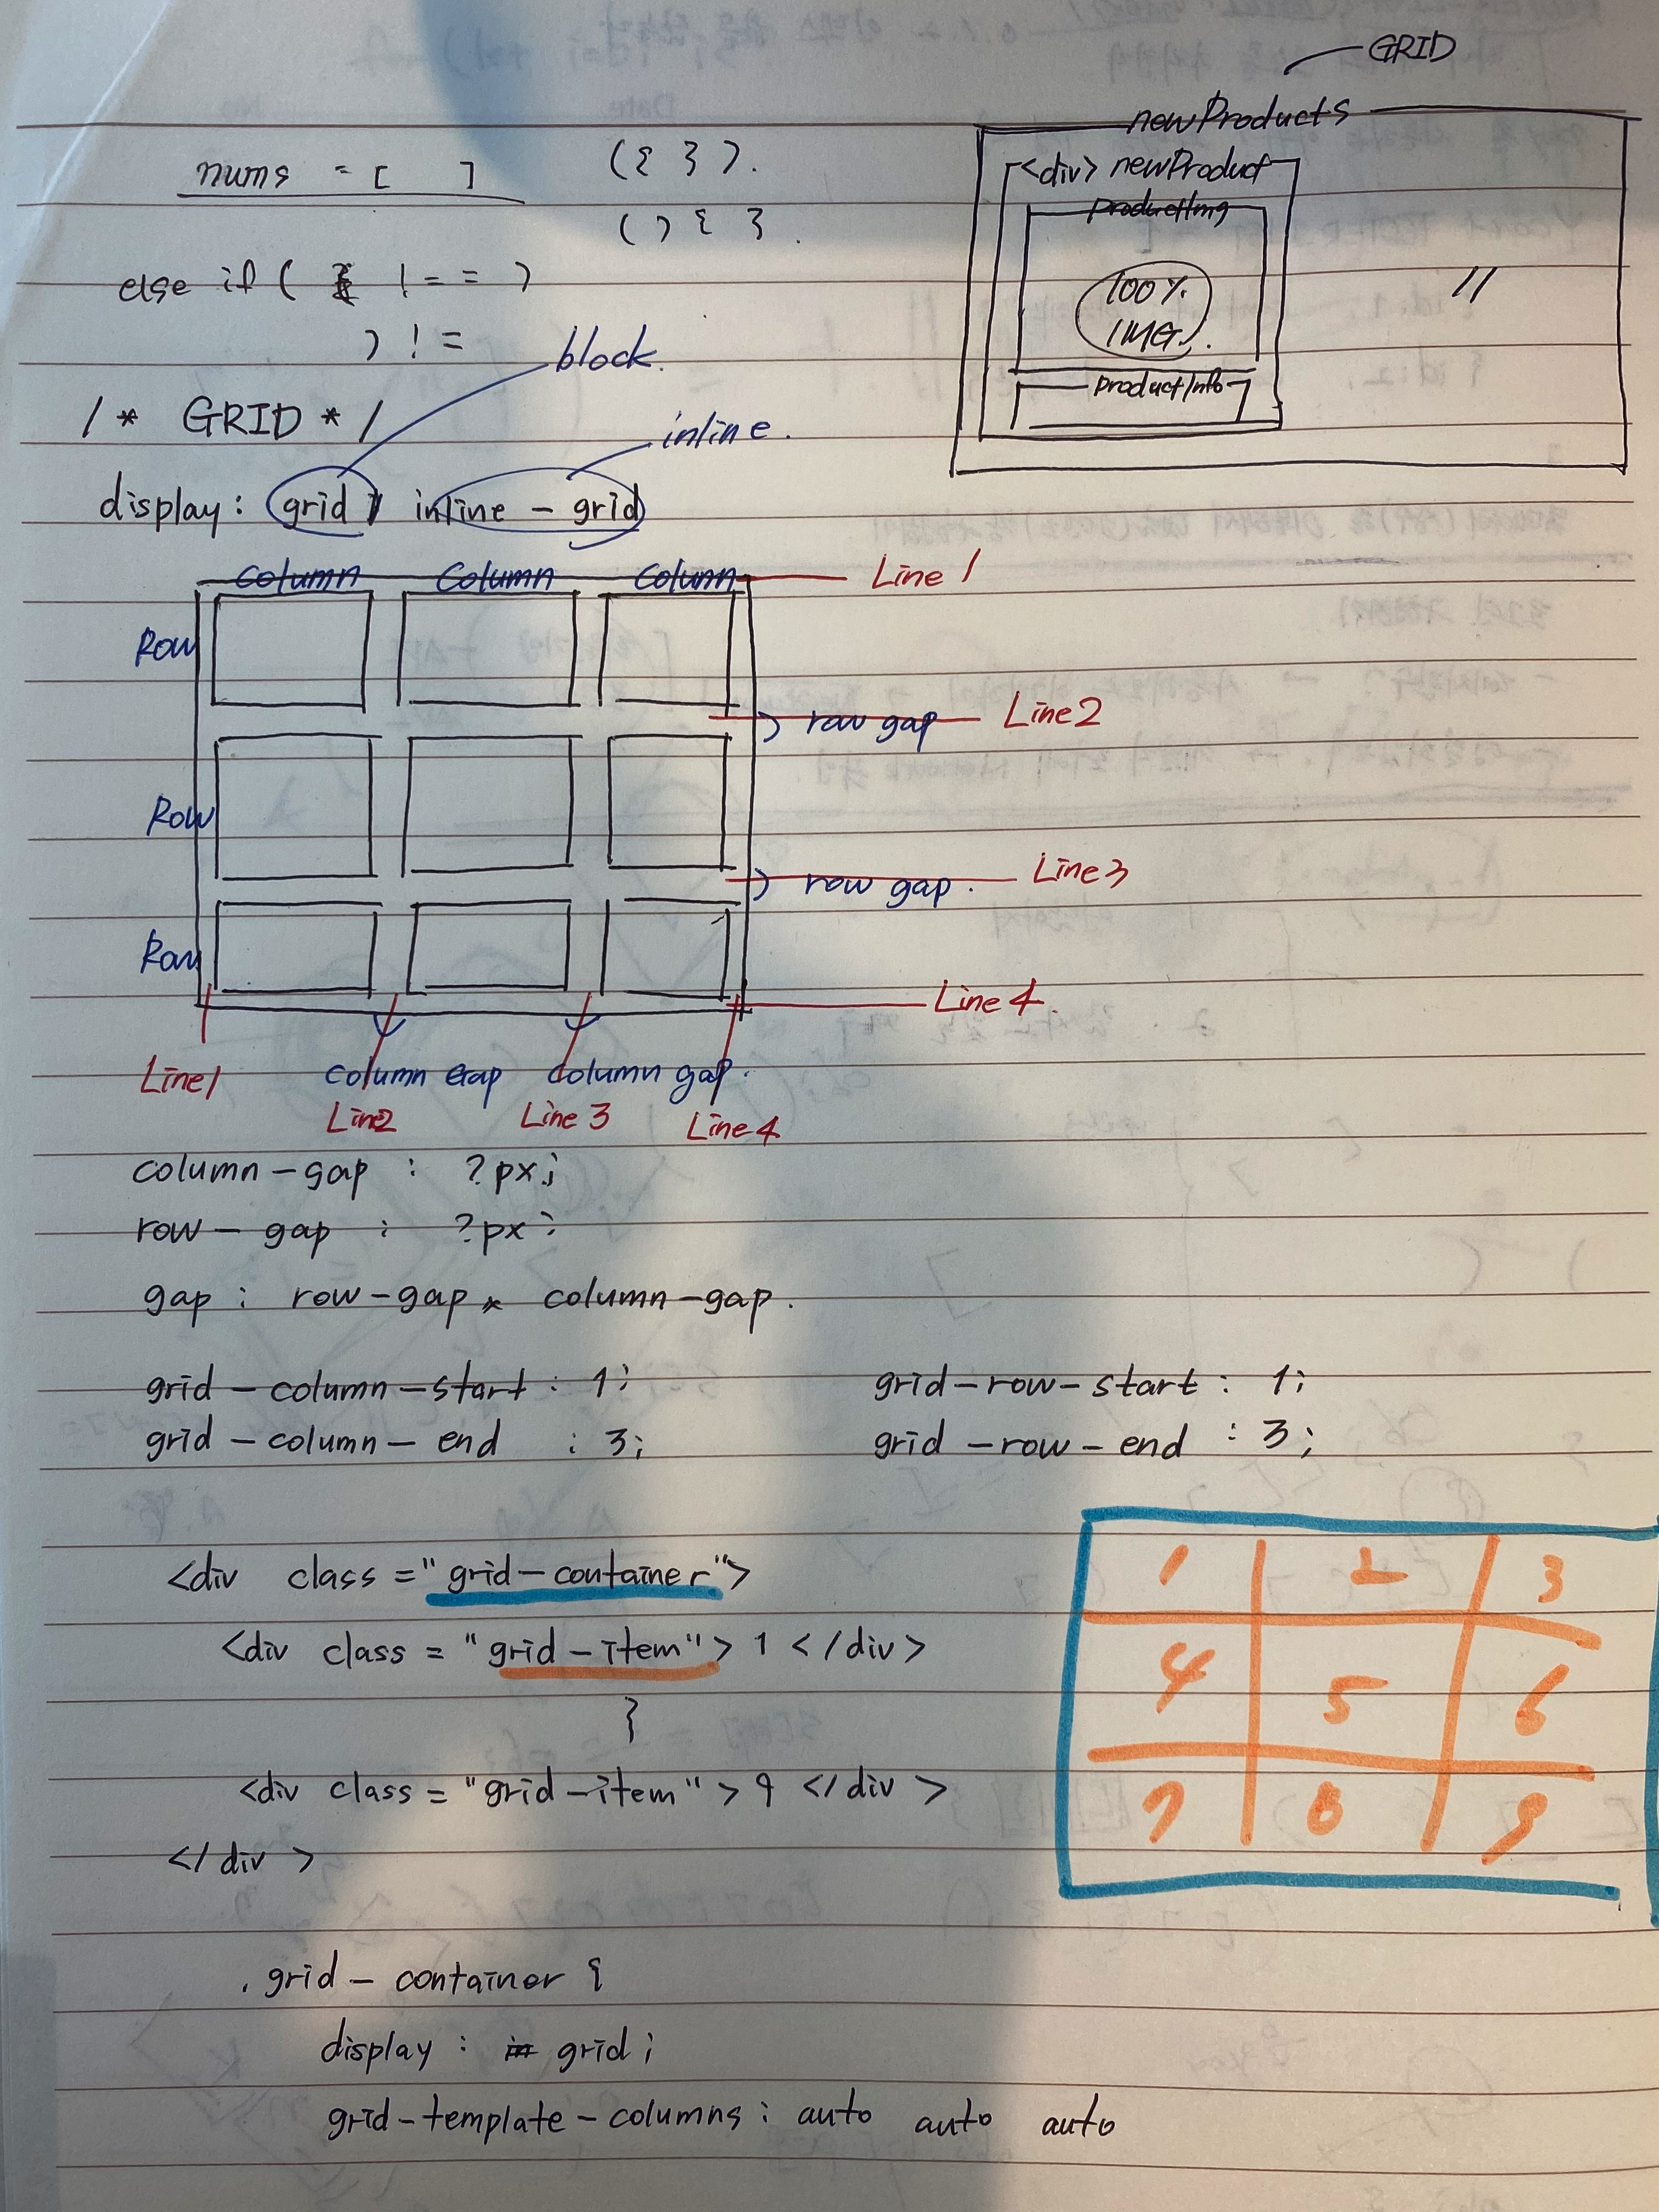 GRID
newProducts
nums = [ ]
({ }).
<div> newProduct
productImg
( ) { }.
else if ( !== )
100%
IMG.
) !=
block.
productInfo
/* GRID */
inline.
display: grid / inline-grid
column column column
Line 1
Row
row gap
Line2
Row
row gap.
Line3
Row
Line 4.
Line1
column gap column gap.
Line2
Line 3
Line4
column-gap : ?px;
row-gap : ?px;
gap : row-gap column-gap.
grid-column-start : 1;
grid-row-start : 1;
grid-column-end : 3;
grid-row-end : 3;
<div class="grid-container">
1 2 3
<div class = "grid-item"> 1 </div>
4 5 6
<div class = "grid-item"> 9 </div>
7 8 9
</div>
.grid-container {
display : grid;
grid-template-columns : auto auto auto